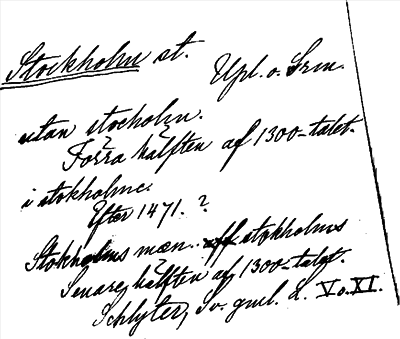 Stockholm st.
Upl. o. Srm.
utan stocholm.
Förra hälften af 1300-talet.
i stokholme.
Efter 1471. ?
Stokholms mæn. aff stokholms
Senare hälften af 1300-talet.
Schlyter, Sv. gml. L. V o. XI.